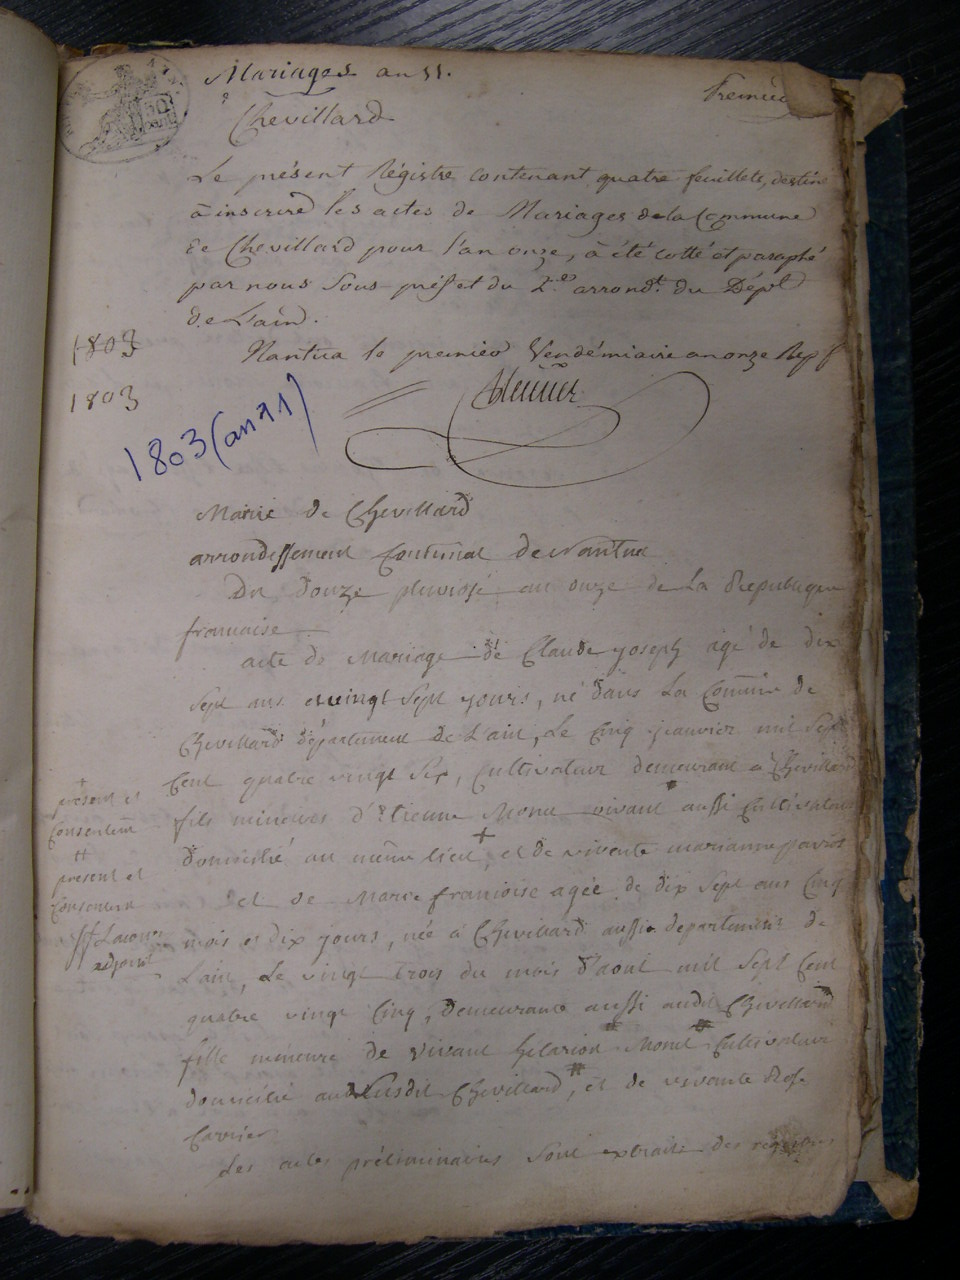 Mariages an 11.
Premier
Chevillard
Le présent Régistre contenant quatre feuillets, destiné
à inscrire les actes de Mariages de la Commune
de Chevillard pour l'an onze, à été cotté et paraphé
par nous Sous préfet du 2.e arrondt. du Dépt
de L'ain.
1803
Nantua le premier Vendémiaire an onze Rep f
1803
1803 (an 11)
Mairie de Chevillard
arrondissement Communal de Nantua
Du Douze pluviose an onze de La Republique
francaise
acte de Mariage de Claude joseph agé de dix
Sept ans et vingt Sept jours, né dans La Commune de
Chevillard département de L'ain, Le Cinq janvier mil Sept
Cent quatre vingt Six, Cultivateur demeurant a Chevillard
fils mineures d'Etienne Monet vivant aussi Cultivateur
domicilié au même lieu + et de vivente marianne
et de Marie francoise agée de dix Sept ans Cinq
mois et dix jours, née a Chevillard aussi departement de
L'ain, Le vingt trois du mois d'aout mil Sept Cent
quatre vingt Cinq, demeurant aussi audit Chevillard
fille mineure de vivant hilarion Monet Cultivateur
domicilié audit Susdit Chevillard #, et de vivante
Carrier
Les actes préliminaires Sont extraits des registres
+
présent et
Consentent
++
présent et
Consentent
adjoint